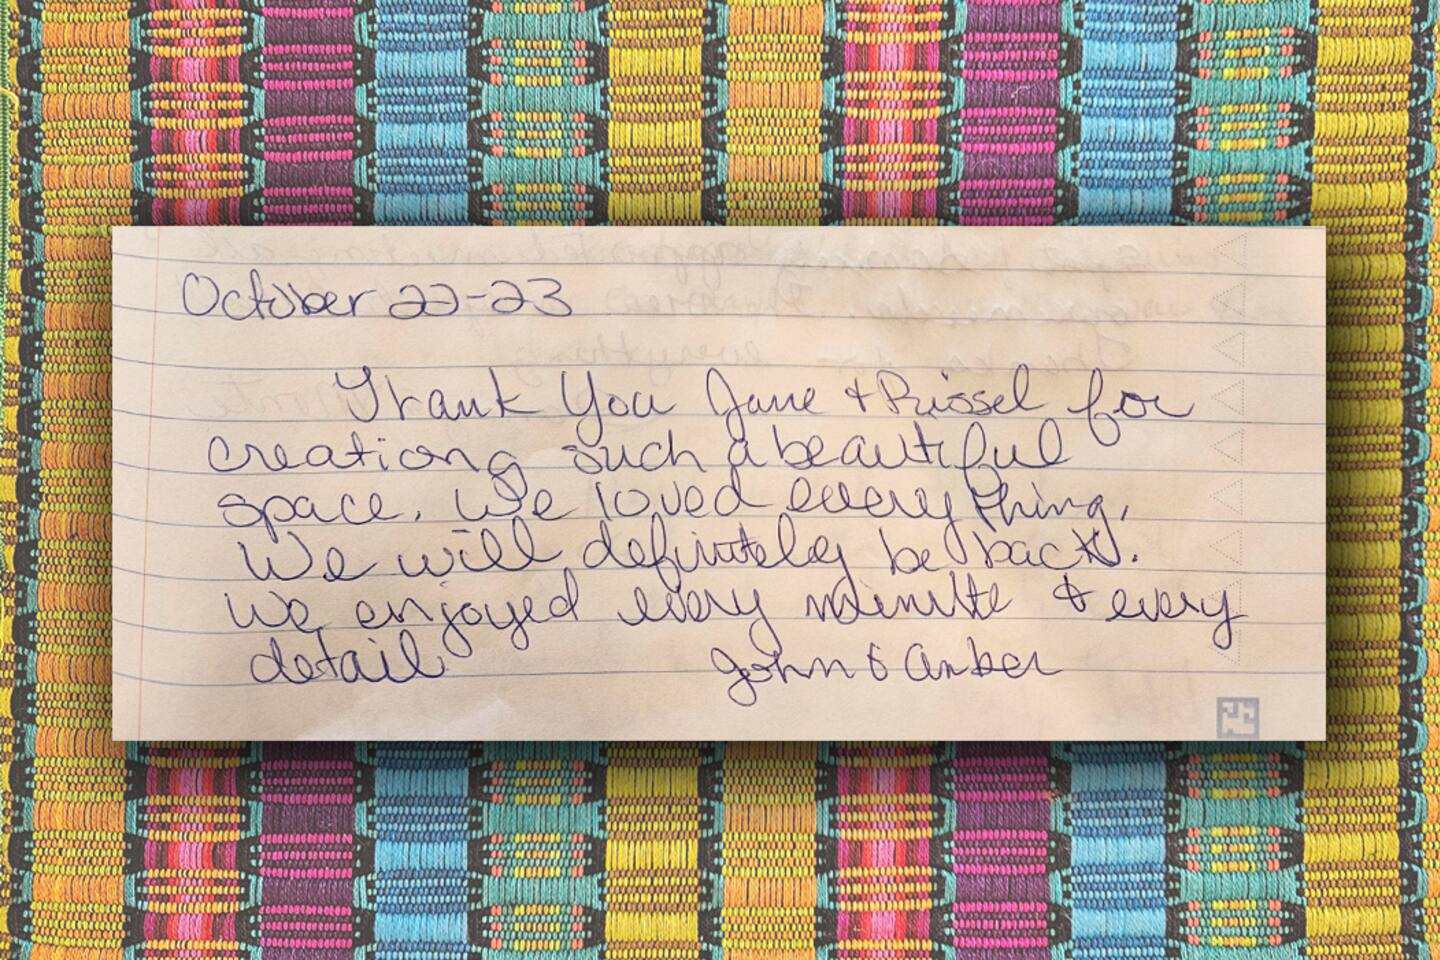 October 22-23
Thank You Jane & Russel for
creationg such a beautiful
space. We loved everything,
We will definitely be back.
We enjoyed every minute & every
detail
John & Amber